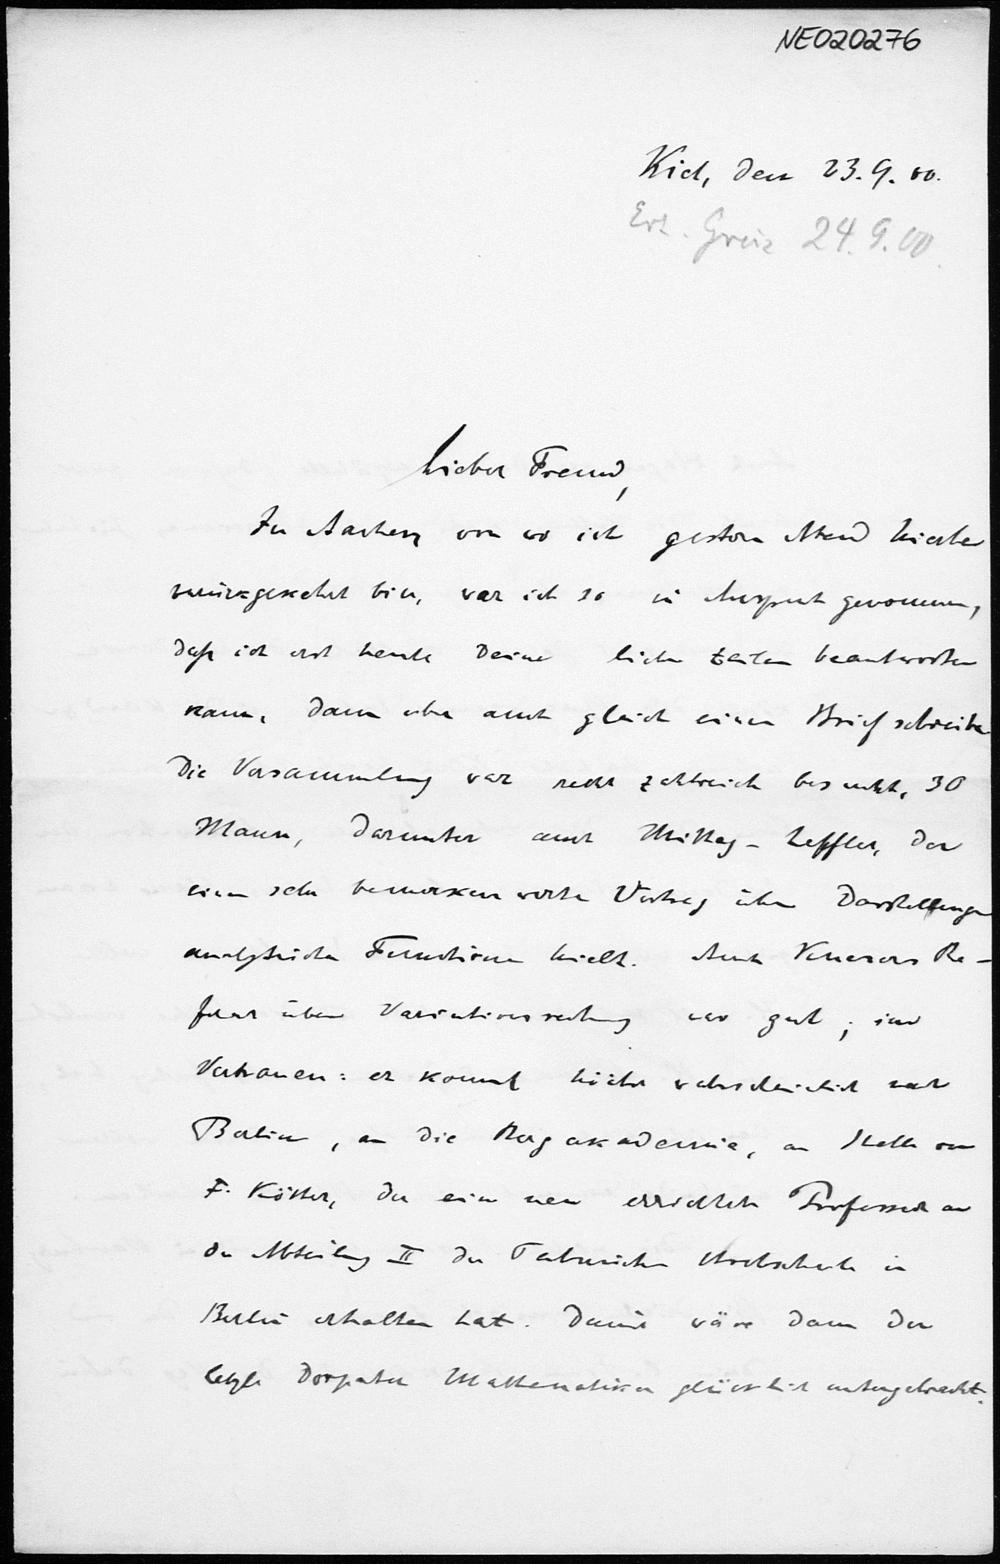 NE020276
Kiel, den 23.9.00.
Erh. Greiz 24.9.00.
Lieber Freund,
In Aachen, von wo ich gestern Abend hierher
zurückgekehrt bin, war ich so in Anspruch genommen,
daß ich erst heute Deine lieben Zeilen beantworten
kann, dann aber auch gleich einen Brief schreibe.
Die Versammlung war recht zahlreich besucht, 30
Mann, darunter auch Mittag-Leffler, der
einen sehr bemerkenswerten Vortrag über Darstellungen
analytischer Functionen hielt. Auch Knesers Re-
ferat über Variationsrechnung war gut; im
Vertrauen: er kommt höchst wahrscheinlich nach
Berlin, an die Bergakademie, an Stelle von
F. Kötter, der eine neu errichtete Professur an
der Abteilung II der Technischen Hochschule in
Berlin erhalten hat. Damit wäre dann der
letzte Dorpater Mathematiker glücklich untergebracht.